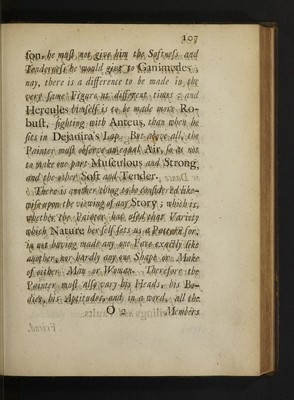 107
son, he must not give him the Softness and
Tenderness he would give to Ganimedes;
nay, there is a difference to be made in the
very same Figure at different times; and
Hercules himself is to be made more Ro-
bust, fighting with Anteus, than when he
sits in Dejanira's Lap. But above all, the
Painter must observe an equal Air, so as not
to make one part Musculous and Strong,
and the other Soft and Tender.
There is another thing to be consider'd like-
wise upon the viewing of any Story; which is,
whether the Painter has used that Variety
which Nature her self sets us a Pattern for,
in not having made any one Face exactly like
another, nor hardly any one Shape or Make
of either Man or Woman. Therefore the
Painter must also vary his Heads, his Bo-
dies, his Aptitudes, and in a word, all the
O 2 Members